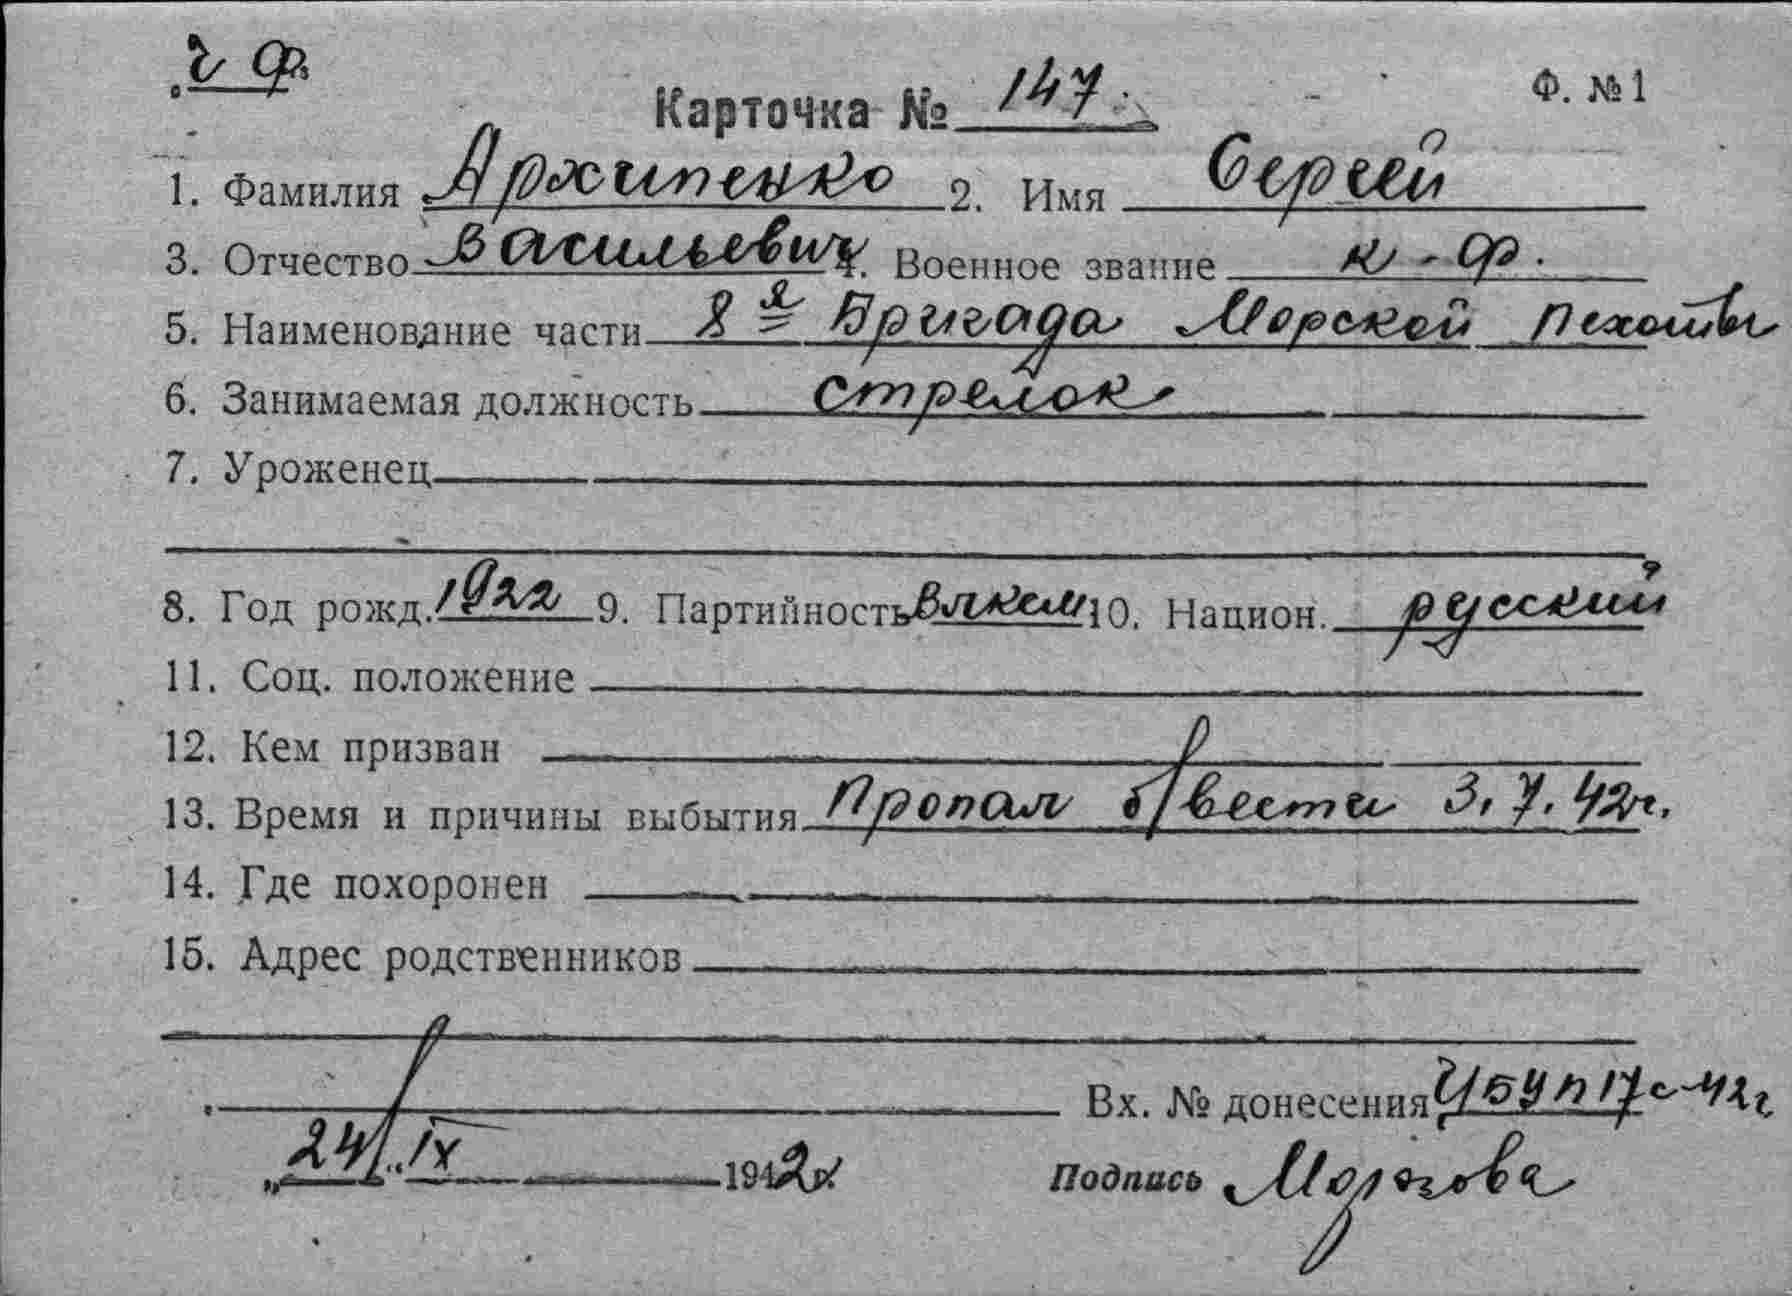 ч ф.
Ф. №1
Карточка № 147.
1. Фамилия Архипенко 2. Имя Сергей
3. Отчество Васильевич 4. Военное звание к-ф.
5. Наименование части 8я Бригада Морской Пехоты
6. Занимаемая должность стрелок
7. Уроженец
8. Год рожд. 1922 9. Партийность влксм 10. Национ. русский
11. Соц. положение
12. Кем призван
13. Время и причины выбытия Пропал б/вести 3.7.42г.
14. Где похоронен
15. Адрес родственников
Вх. № донесения 17с-42г
„24/„ IX 1942г Подпись Морозова